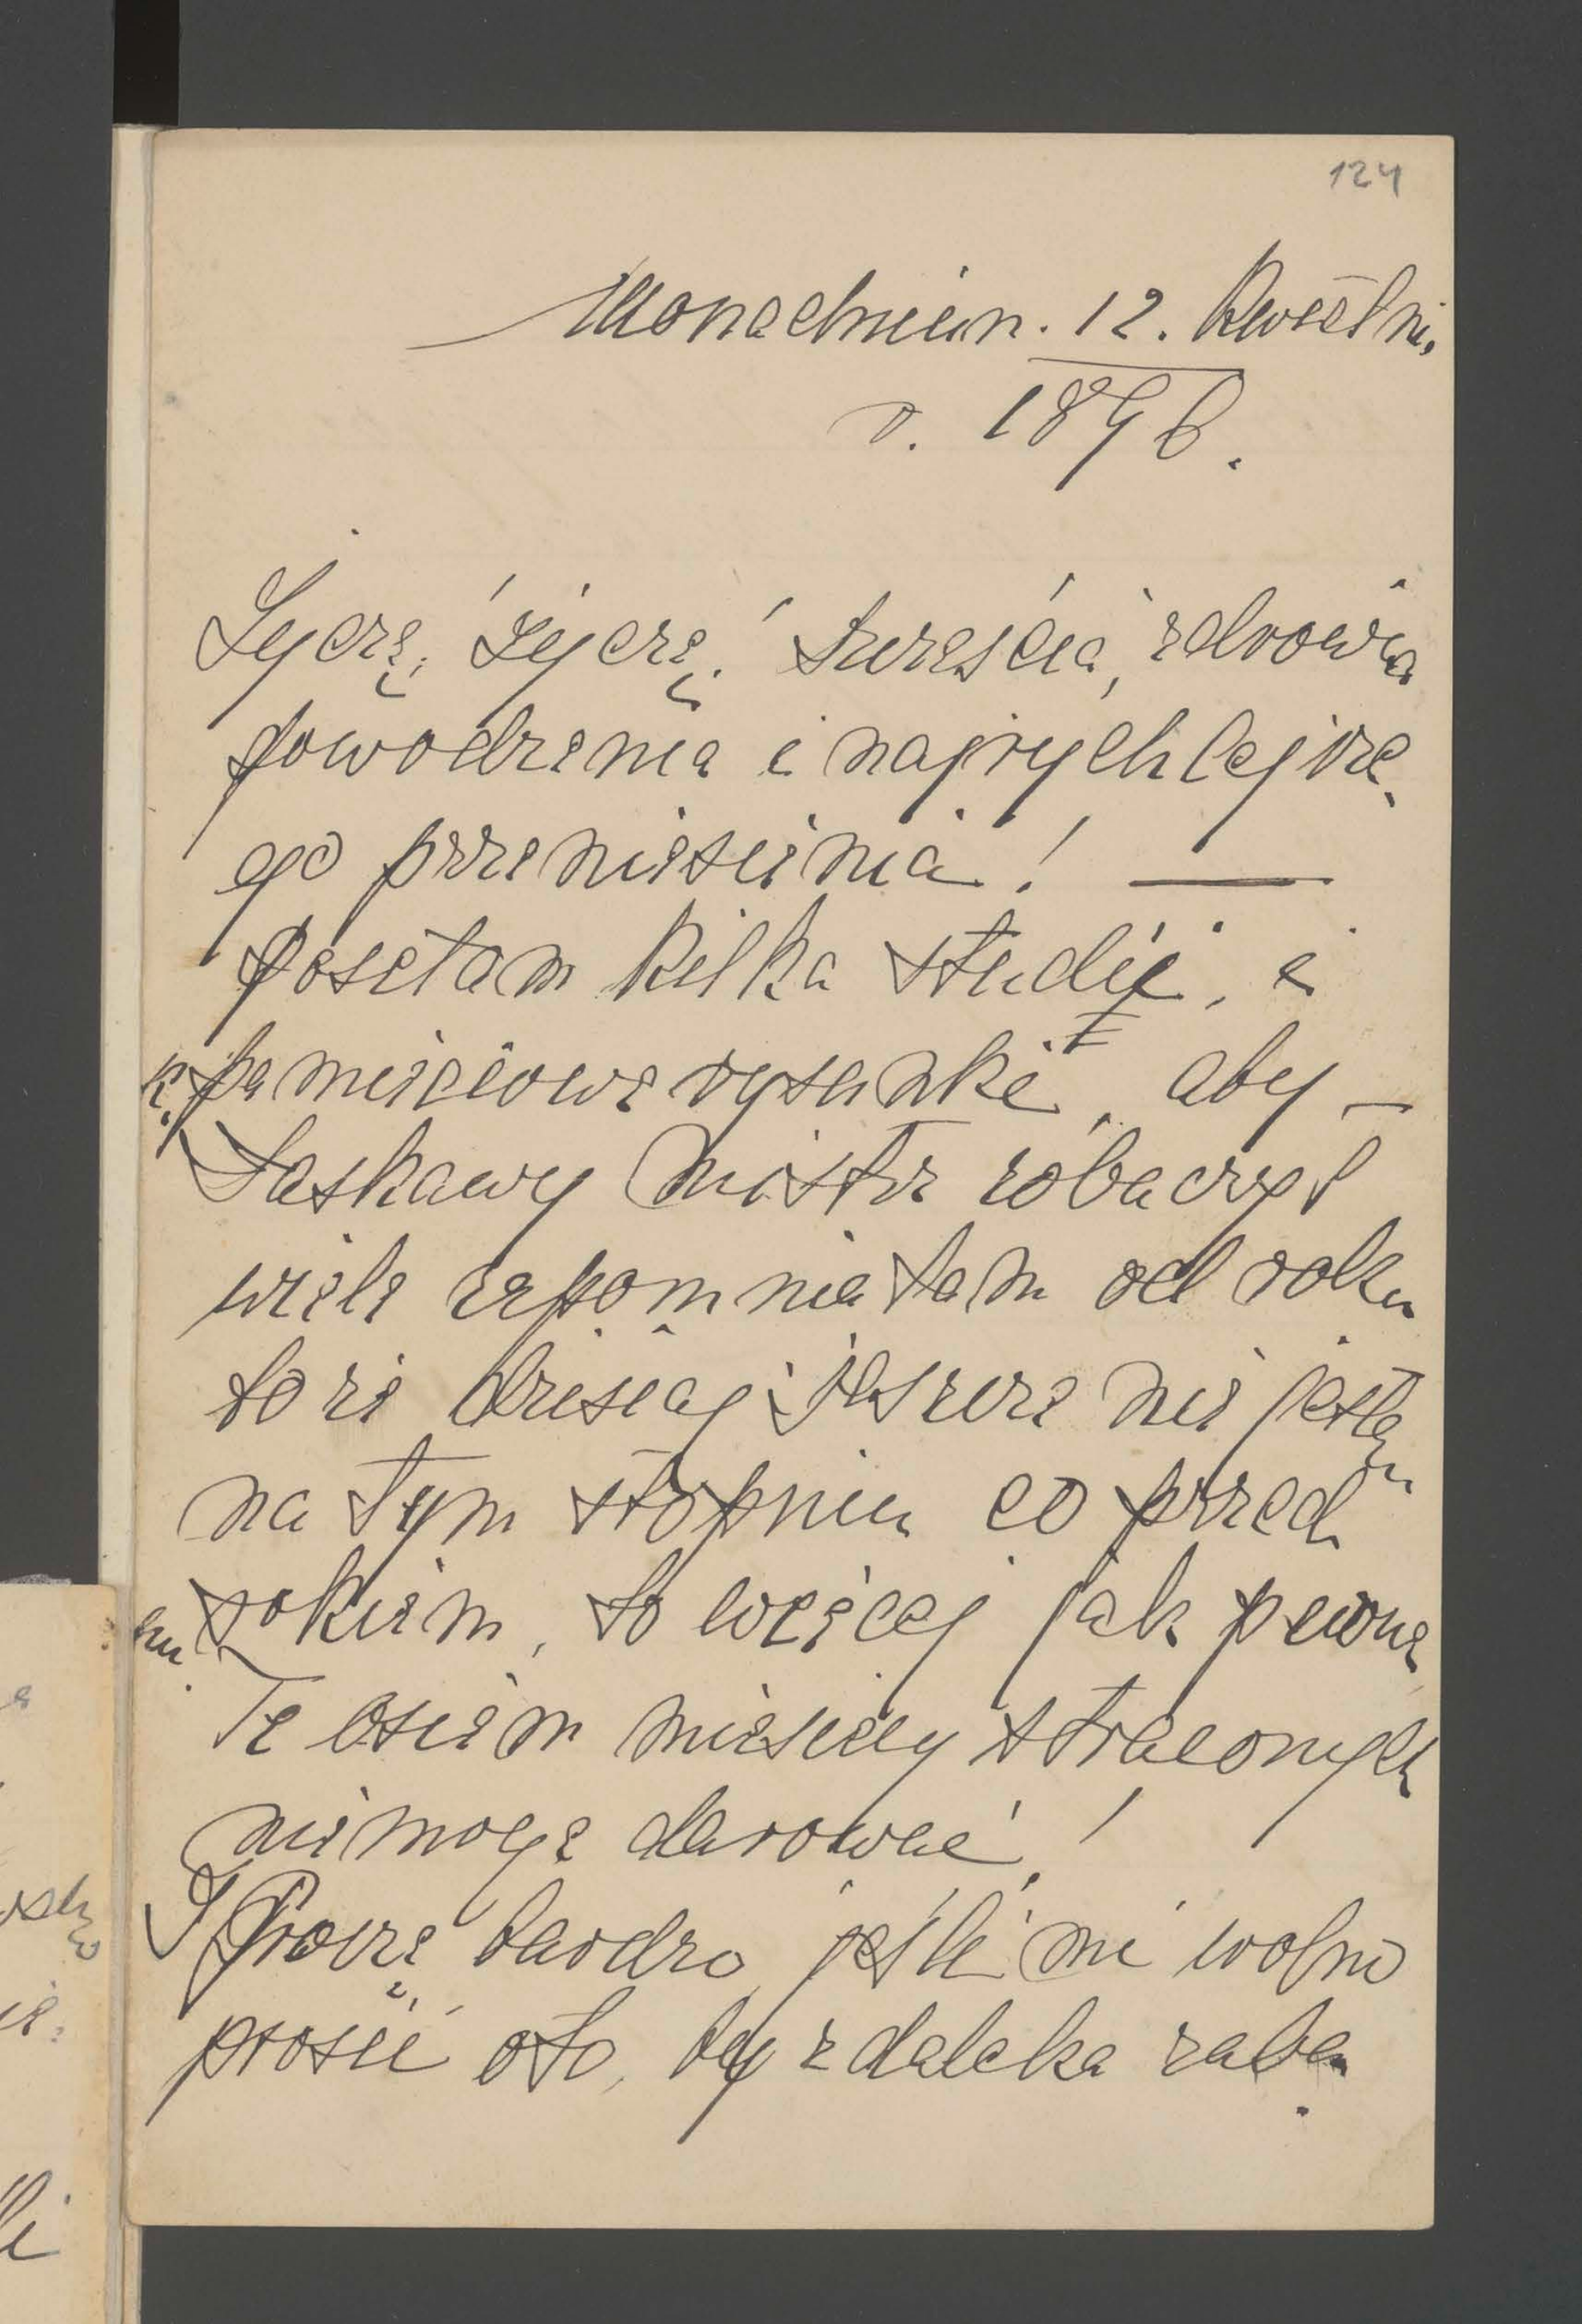 124
Monachium. 12. Kwietni.
r. 1896.
Życzę, życzę! Szczęścia, zdrowia
powodzenia i najrychlejsze
go przeniesienia! —
Posełam kilka studii, i
pamięciowe rysunki, aby —
Łaskawy Mistrz zobaczył
wiele zapomniałam od roku
to że dzisiaj jeszcze nie jestem
na tym stopniu co przed
rokiem, to więcej jak pewne
Te osiem miesięcy straconych
nie mogę darować!
Proszę bardzo jeśli mi wolno
prosić oto, by z daleka zaba